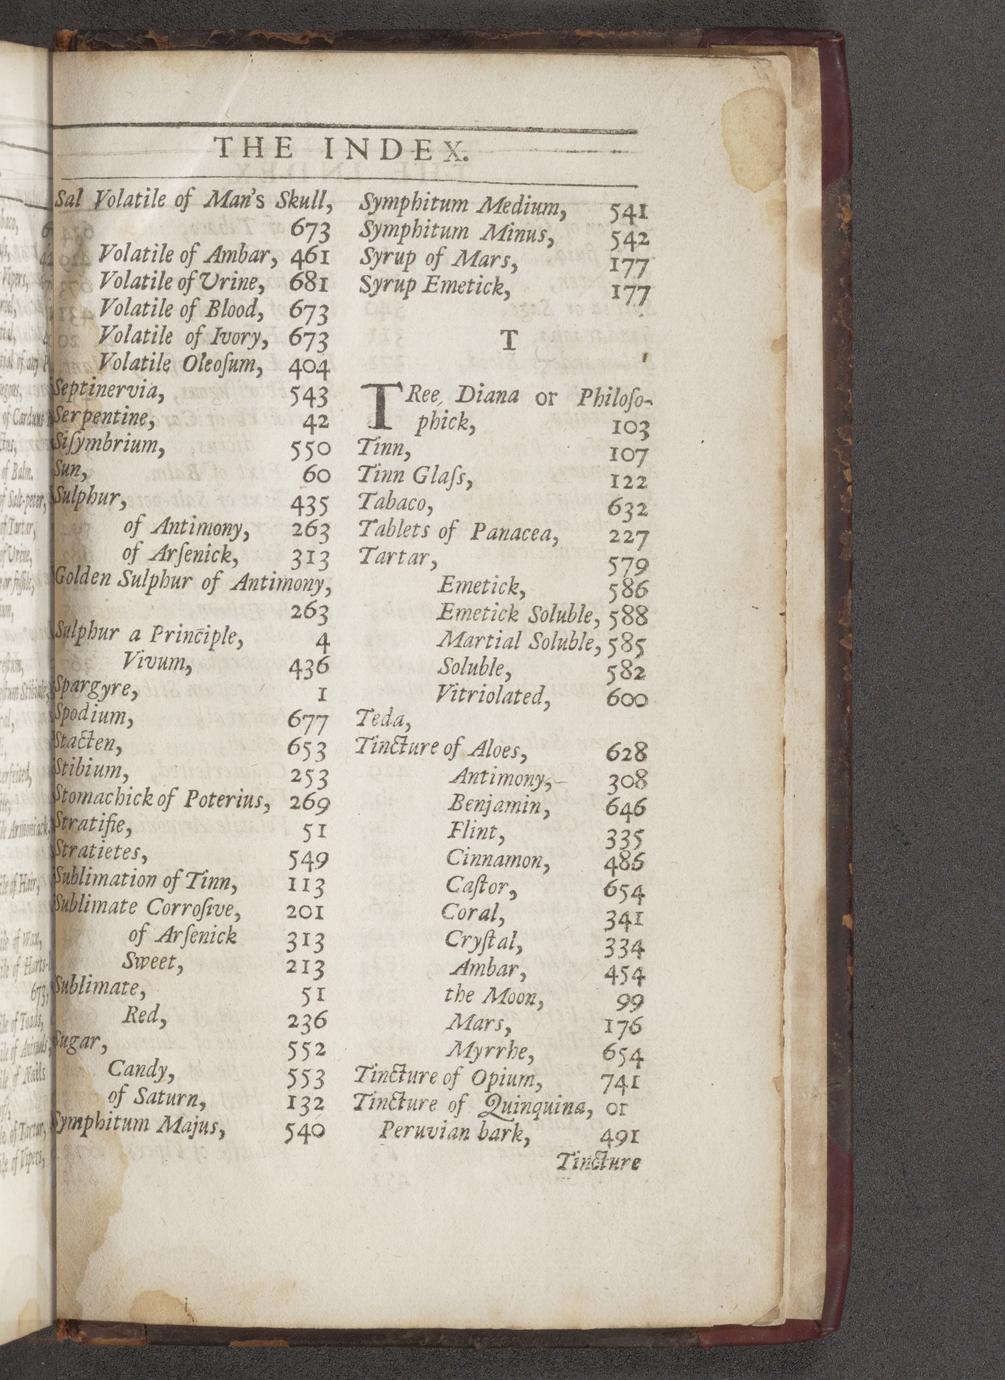 THE INDEX.
Sal Volatile of Man's Skull,
673
Volatile of Ambar, 461
Volatile of Urine, 681
Volatile of Blood, 673
Volatile of Ivory, 673
Volatile Oleoſum, 404
Septinervia, 543
Serpentine, 42
Siſymbrium, 550
Sun, 60
Sulphur, 435
of Antimony, 263
of Arſenick, 313
Golden Sulphur of Antimony,
263
Sulphur a Principle, 4
Vivum, 436
Spargyre, 1
Spodium, 677
Stacten, 653
Stibium, 253
Stomachick of Poterius, 269
Stratifie, 51
Stratietes, 549
Sublimation of Tinn, 113
Sublimate Corroſive, 201
of Arſenick 313
Sweet, 213
Sublimate, 51
Red, 236
Sugar, 552
Candy, 553
of Saturn, 132
Symphitum Majus, 540
Symphitum Medium, 541
Symphitum Minus, 542
Syrup of Mars, 177
Syrup Emetick, 177
T
TRee, Diana or Philoſo-
phick, 103
Tinn, 107
Tinn Glaſs, 122
Tabaco, 632
Tablets of Panacea, 227
Tartar, 579
Emetick, 586
Emetick Soluble, 588
Martial Soluble, 585
Soluble, 582
Vitriolated, 600
Teda,
Tincture of Aloes, 628
Antimony, 308
Benjamin, 646
Flint, 335
Cinnamon, 486
Caſtor, 654
Coral, 341
Cryſtal, 334
Ambar, 454
the Moon, 99
Mars, 176
Myrrhe, 654
Tincture of Opium, 741
Tincture of Quinquina, or
Peruvian bark, 491
Tincture